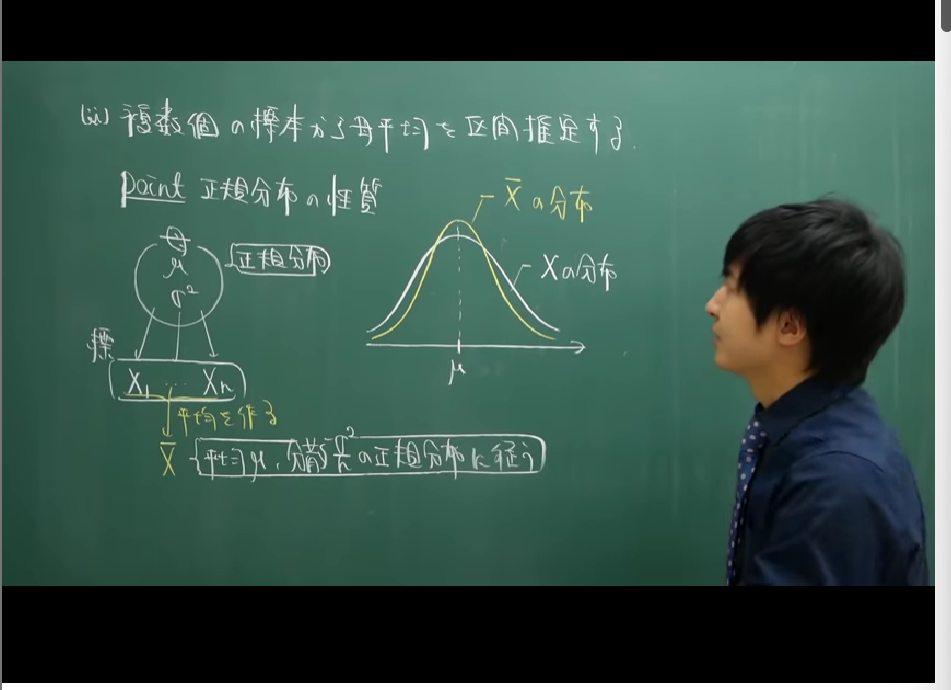 (iii) 複数個の標本から母平均を区間推定する.
Point 正規分布の性質
母
μ
σ²
正規分布
標
X₁ … Xn
平均を作る
X̄
平均μ, 分散σ²/nの正規分布に従う
X̄の分布
Xの分布
μ